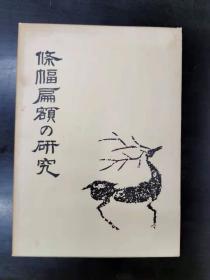 條幅扁額の研究